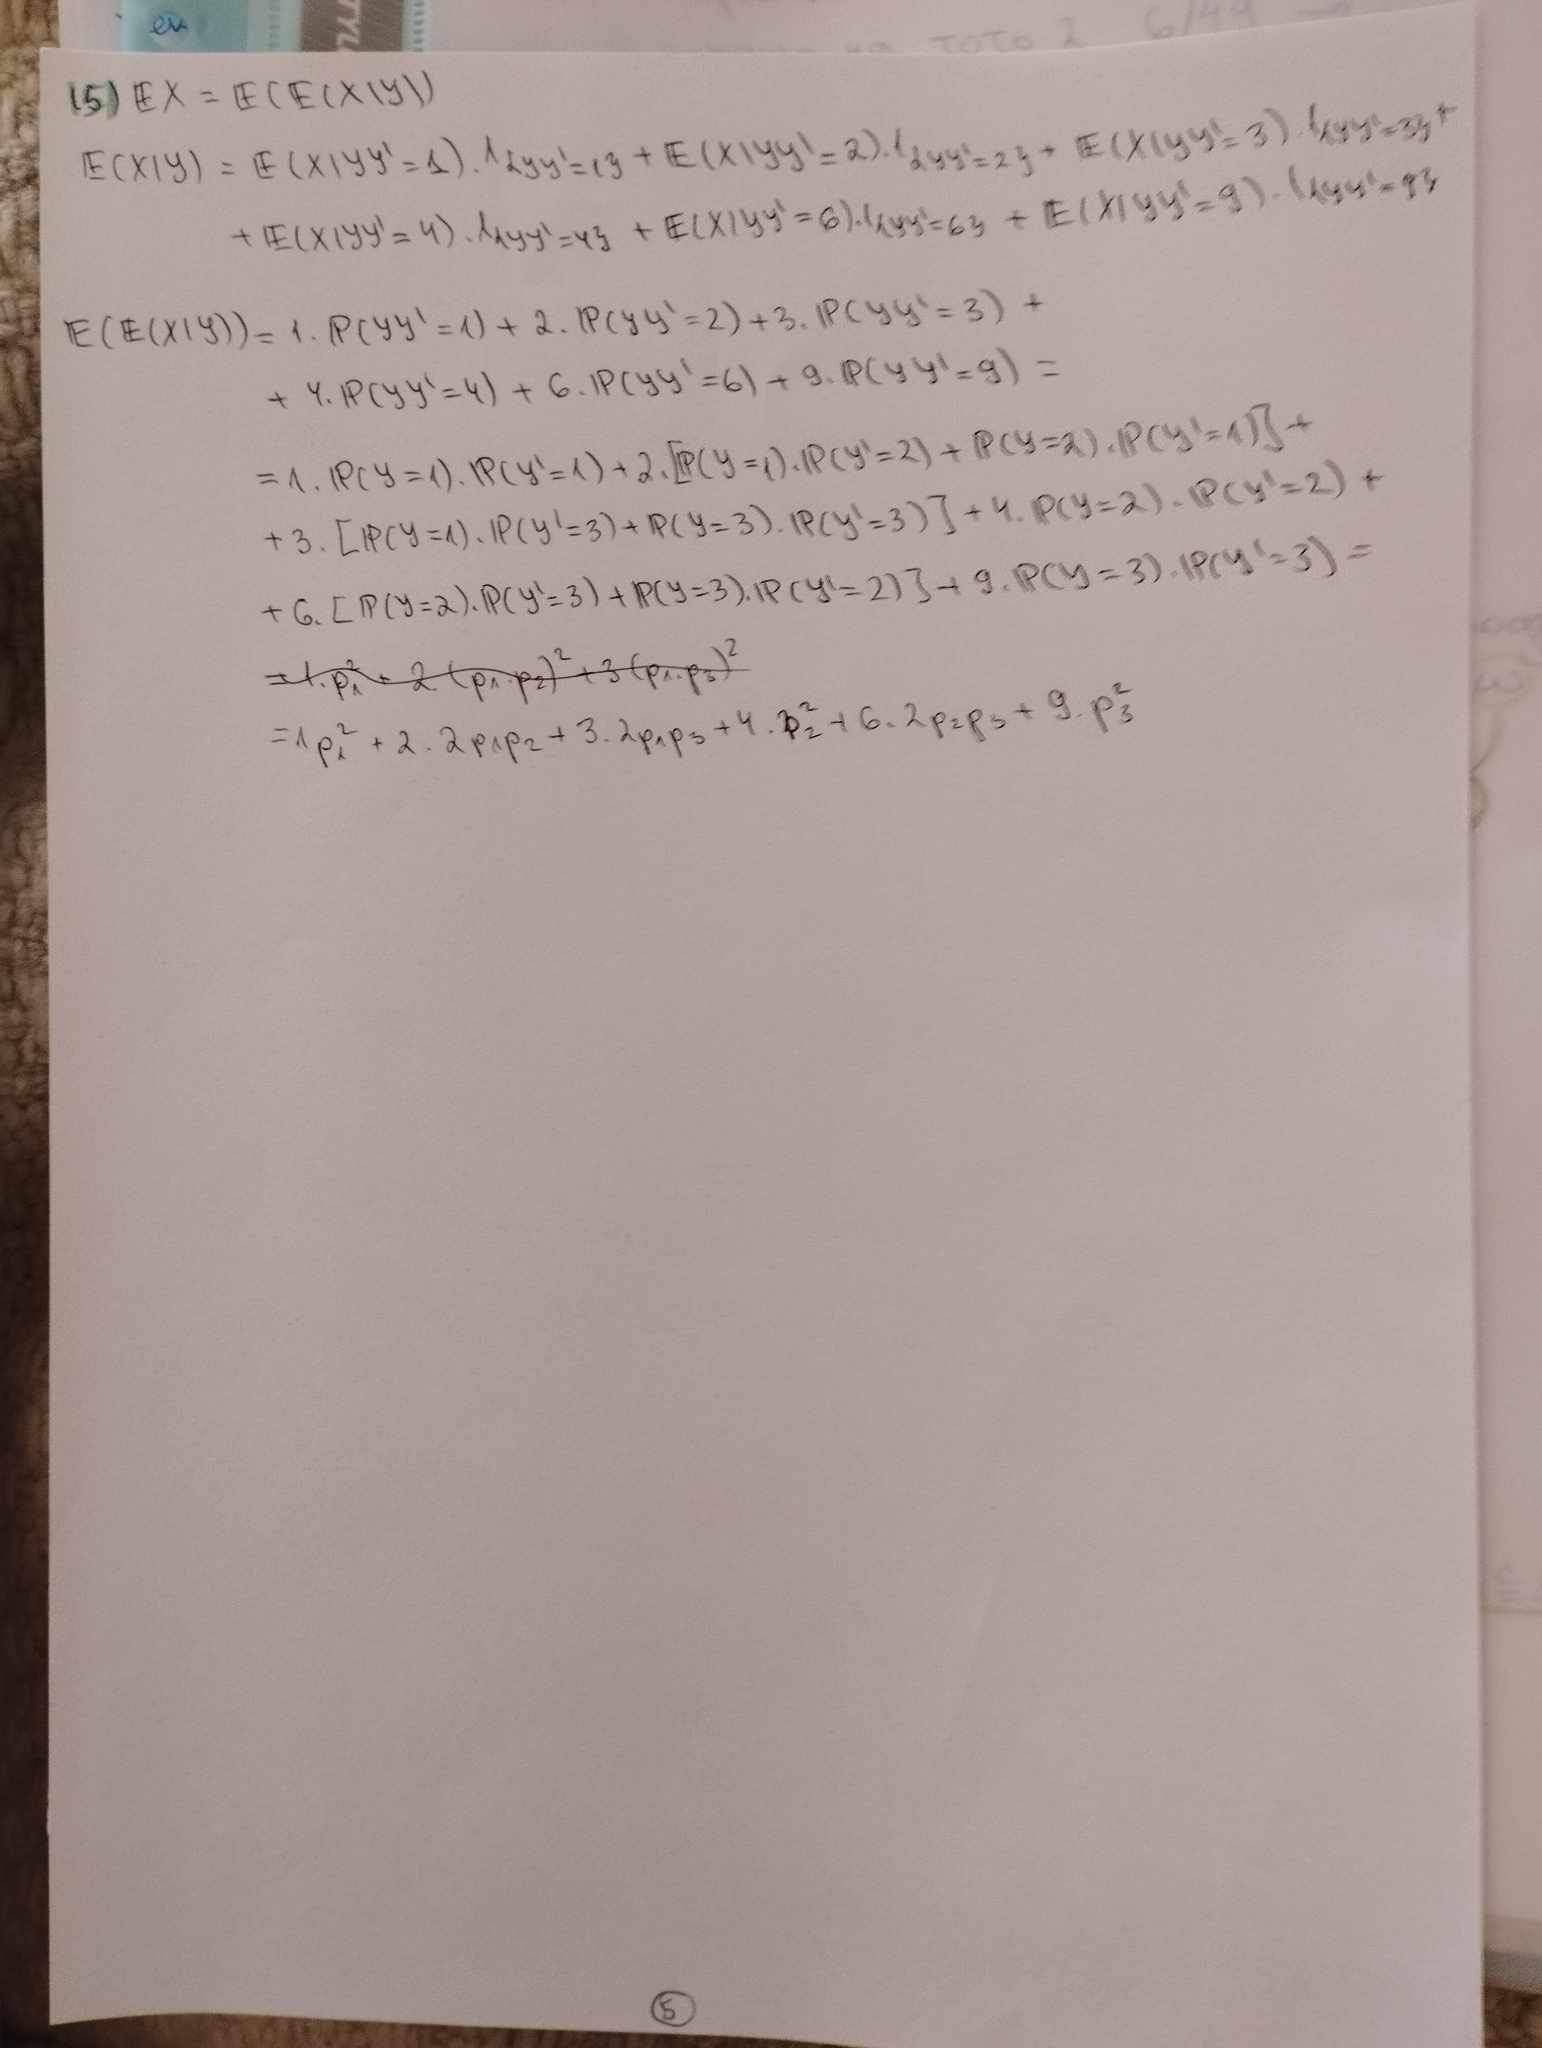 en
TYU
на ТОТО 2 6/49
(5) 𝔼X = 𝔼(𝔼(X|Y))
𝔼(X|Y) = 𝔼(X|YY'=1).1_{YY'=1} + 𝔼(X|YY'=2).1_{YY'=2} + 𝔼(X|YY'=3).1_{YY'=3} +
+ 𝔼(X|YY'=4).1_{YY'=4} + 𝔼(X|YY'=6).1_{YY'=6} + 𝔼(X|YY'=9).1_{YY'=9}
𝔼(𝔼(X|Y)) = 1.ℙ(YY'=1) + 2.ℙ(YY'=2) + 3.ℙ(YY'=3) +
+ 4.ℙ(YY'=4) + 6.ℙ(YY'=6) + 9.ℙ(YY'=9) =
= 1.ℙ(Y=1).ℙ(Y'=1) + 2.[ℙ(Y=1).ℙ(Y'=2) + ℙ(Y=2).ℙ(Y'=1)] +
+ 3.[ℙ(Y=1).ℙ(Y'=3) + ℙ(Y=3).ℙ(Y'=3)] + 4.ℙ(Y=2).ℙ(Y'=2) +
+ 6.[ℙ(Y=2).ℙ(Y'=3) + ℙ(Y=3).ℙ(Y'=2)] + 9.ℙ(Y=3).ℙ(Y'=3) =
= 1.p₁² + 2(p₁.p₂)² + 3(p₁.p₃)²
= 1p₁² + 2.2p₁p₂ + 3.2p₁p₃ + 4.p₂² + 6.2p₂p₃ + 9.p₃²
5